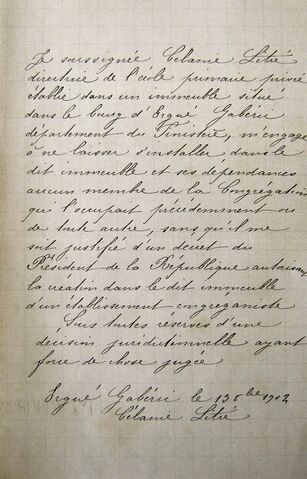 Je soussignée Célanie Litié
directrice de l'école primaire privée
établie dans un immeuble situé
dans le bourg d'Ergué Gabéric
département du Finistère, m'engage
à ne laisser s'installer, dans le
dit immeuble et ses dépendances
aucun membre de la Congrégation
qui l'occupait précédemment ou
de toute autre, sans qu'il me
soit justifié d'un décret du
Président de la République autorisant
la création dans le dit immeuble
d'un établissement congréganiste
Sous toutes réserves d'une
décision juridictionnelle ayant
force de chose jugée
Ergué Gabéric le 13 8bre 1902
Célanie Litié